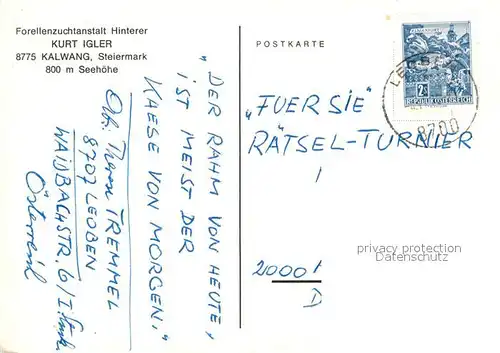 Forellenzuchtanstalt Hinterer
KURT IGLER
8775 KALWANG, Steiermark
800 m Seehöhe
„DER RAHM VON HEUTE,
IST MEIST DER
KAESE VON MORGEN."
TREMMEL
8707 LEOBEN
WAIDBACHSTR. 6/I.
Österreich
POSTKARTE
2S
REPUBLIK ÖSTERREICH
8700
„FUER SIE"
RÄTSEL-TURNIER
2000 1
D
privacy protection
Datenschutz